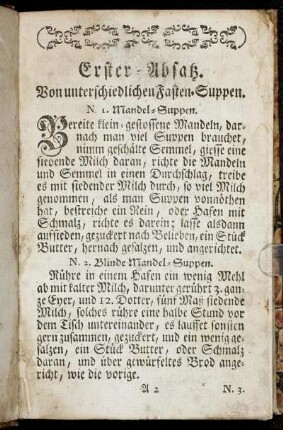 Erster-Absatz.
Von unterschiedlichen Fasten-Suppen.
N. 1. Mandel-Suppen.
Bereite klein-gestossene Mandeln, dar-
nach man viel Suppen brauchet,
nimm geschälte Semmel, giesse eine
siedende Milch daran, richte die Mandeln
und Semmel in einen Durchschlag, treibe
es mit siedender Milch durch, so viel Milch
genommen, als man Suppen vonnöthen
hat, bestreiche ein Rein, oder Hafen mit
Schmalz, richte es darein; lasse alsdann
aufsieden, gezuckert nach Belieben, ein Stück
Butter, hernach gesalzen, und angerichtet.
N. 2. Blinde Mandel-Suppen.
Rühre in einem Hafen ein wenig Mehl
ab mit kalter Milch, darunter gerührt 3. gan-
ze Eyer, und 12. Dotter, fünf Maß siedende
Milch, solches rühre eine halbe Stund vor
dem Tisch untereinander, es lauffet sonsten
gern zusammen, gezuckert, und ein wenig ge-
salzen, ein Stück Butter, oder Schmalz
daran, und über gewürfeltes Brod ange-
richt, wie die vorige.
A 2 N. 3.